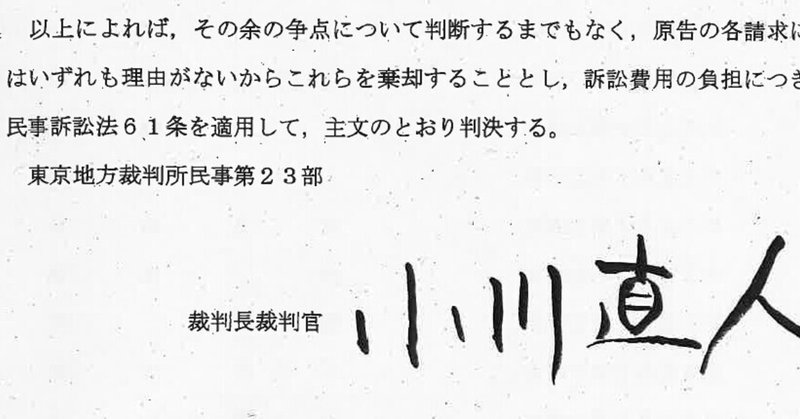 以上によれば，その余の争点について判断するまでもなく，原告の各請求に
はいずれも理由がないからこれらを棄却することとし，訴訟費用の負担につき
民事訴訟法６１条を適用して，主文のとおり判決する。
東京地方裁判所民事第２３部
裁判長裁判官 小川直人